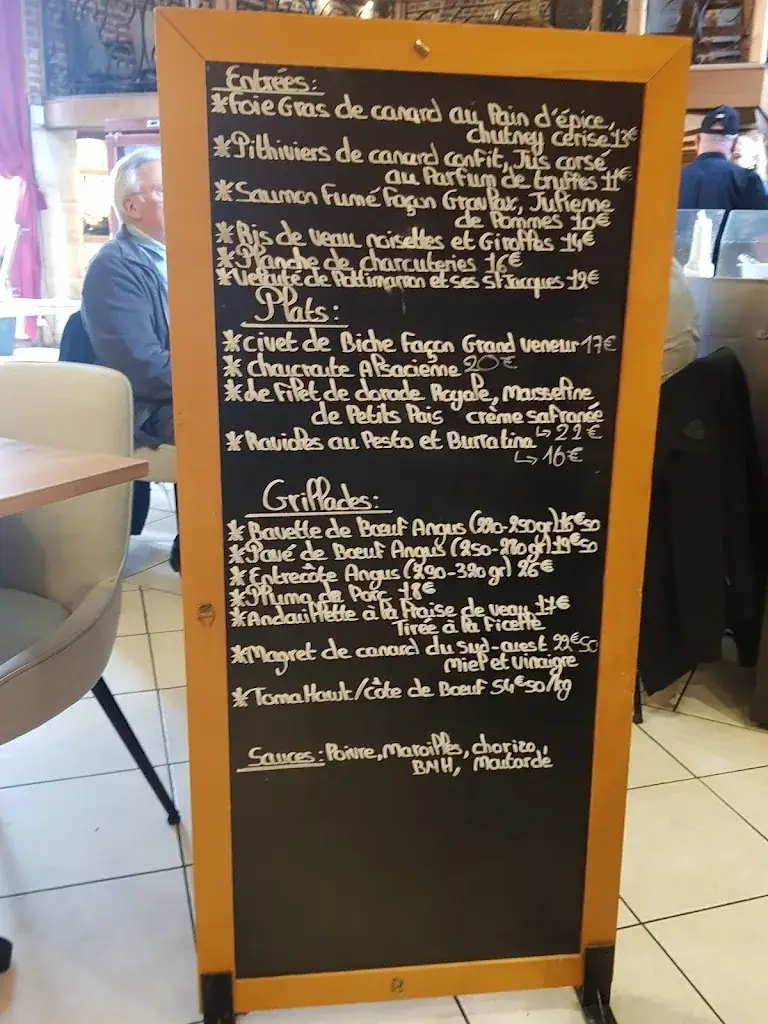 Entrées:
*Foie Gras de canard au Pain d'épice,
chutney cerise 13€
*Pithiviers de canard confit, Jus corsé
au Parfum de truffes 11€
*Saumon Fumé Façon Gravlax, Julienne
de Pommes 10€
*Ris de veau noisettes et Girolles 14€
*Planche de charcuteries 16€
*Velouté de Potimarron et ses St Jacques 12€
Plats:
*civet de Biche Façon Grand veneur 17€
*choucroute Alsacienne 20€
*de Filet de dorade Royale, Marseline
de Petits Pois crème safranée
↳ 22€
*Ravioles au Pesto et Burratina
↳ 16€
Grillades:
*Bavette de Bœuf Angus (220-250gr) 16€50
*Pavé de Bœuf Angus (250-280gr) 19€50
*Entrecôte Angus (290-320gr) 26€
*Pluma de Porc 18€
*Andouillette à la Fraise de veau 17€
Tirée à la Ficelle
*Magret de canard du Sud-ouest 22€50
miel et vinaigre
*TomaHawk/Côte de Bœuf 54€50/kg
Sauces: Poivre, Maroilles, chorizo,
BMH, Moutarde